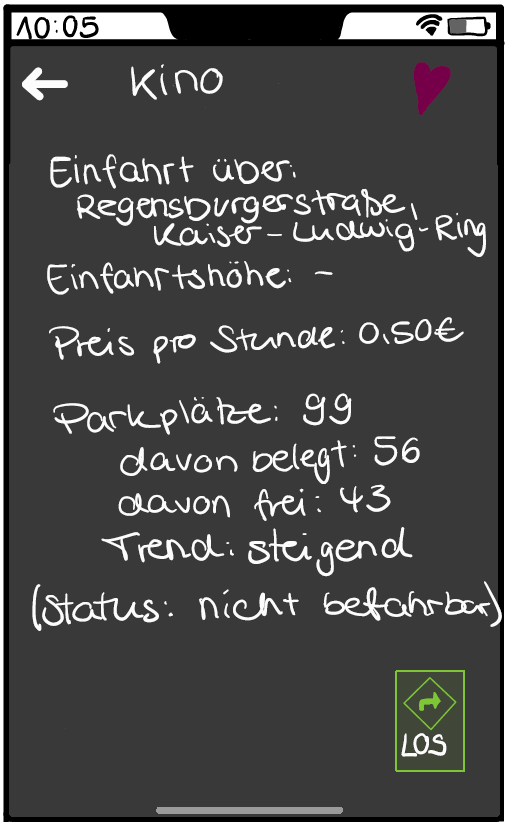 10:05
Kino
Einfahrt über:
Regensburgerstraße,
Kaiser-Ludwig-Ring
Einfahrtshöhe: -
Preis pro Stunde: 0.50€
Parkplätze: 99
davon belegt: 56
davon frei: 43
Trend: steigend
(Status: nicht befahrbar)
LOS